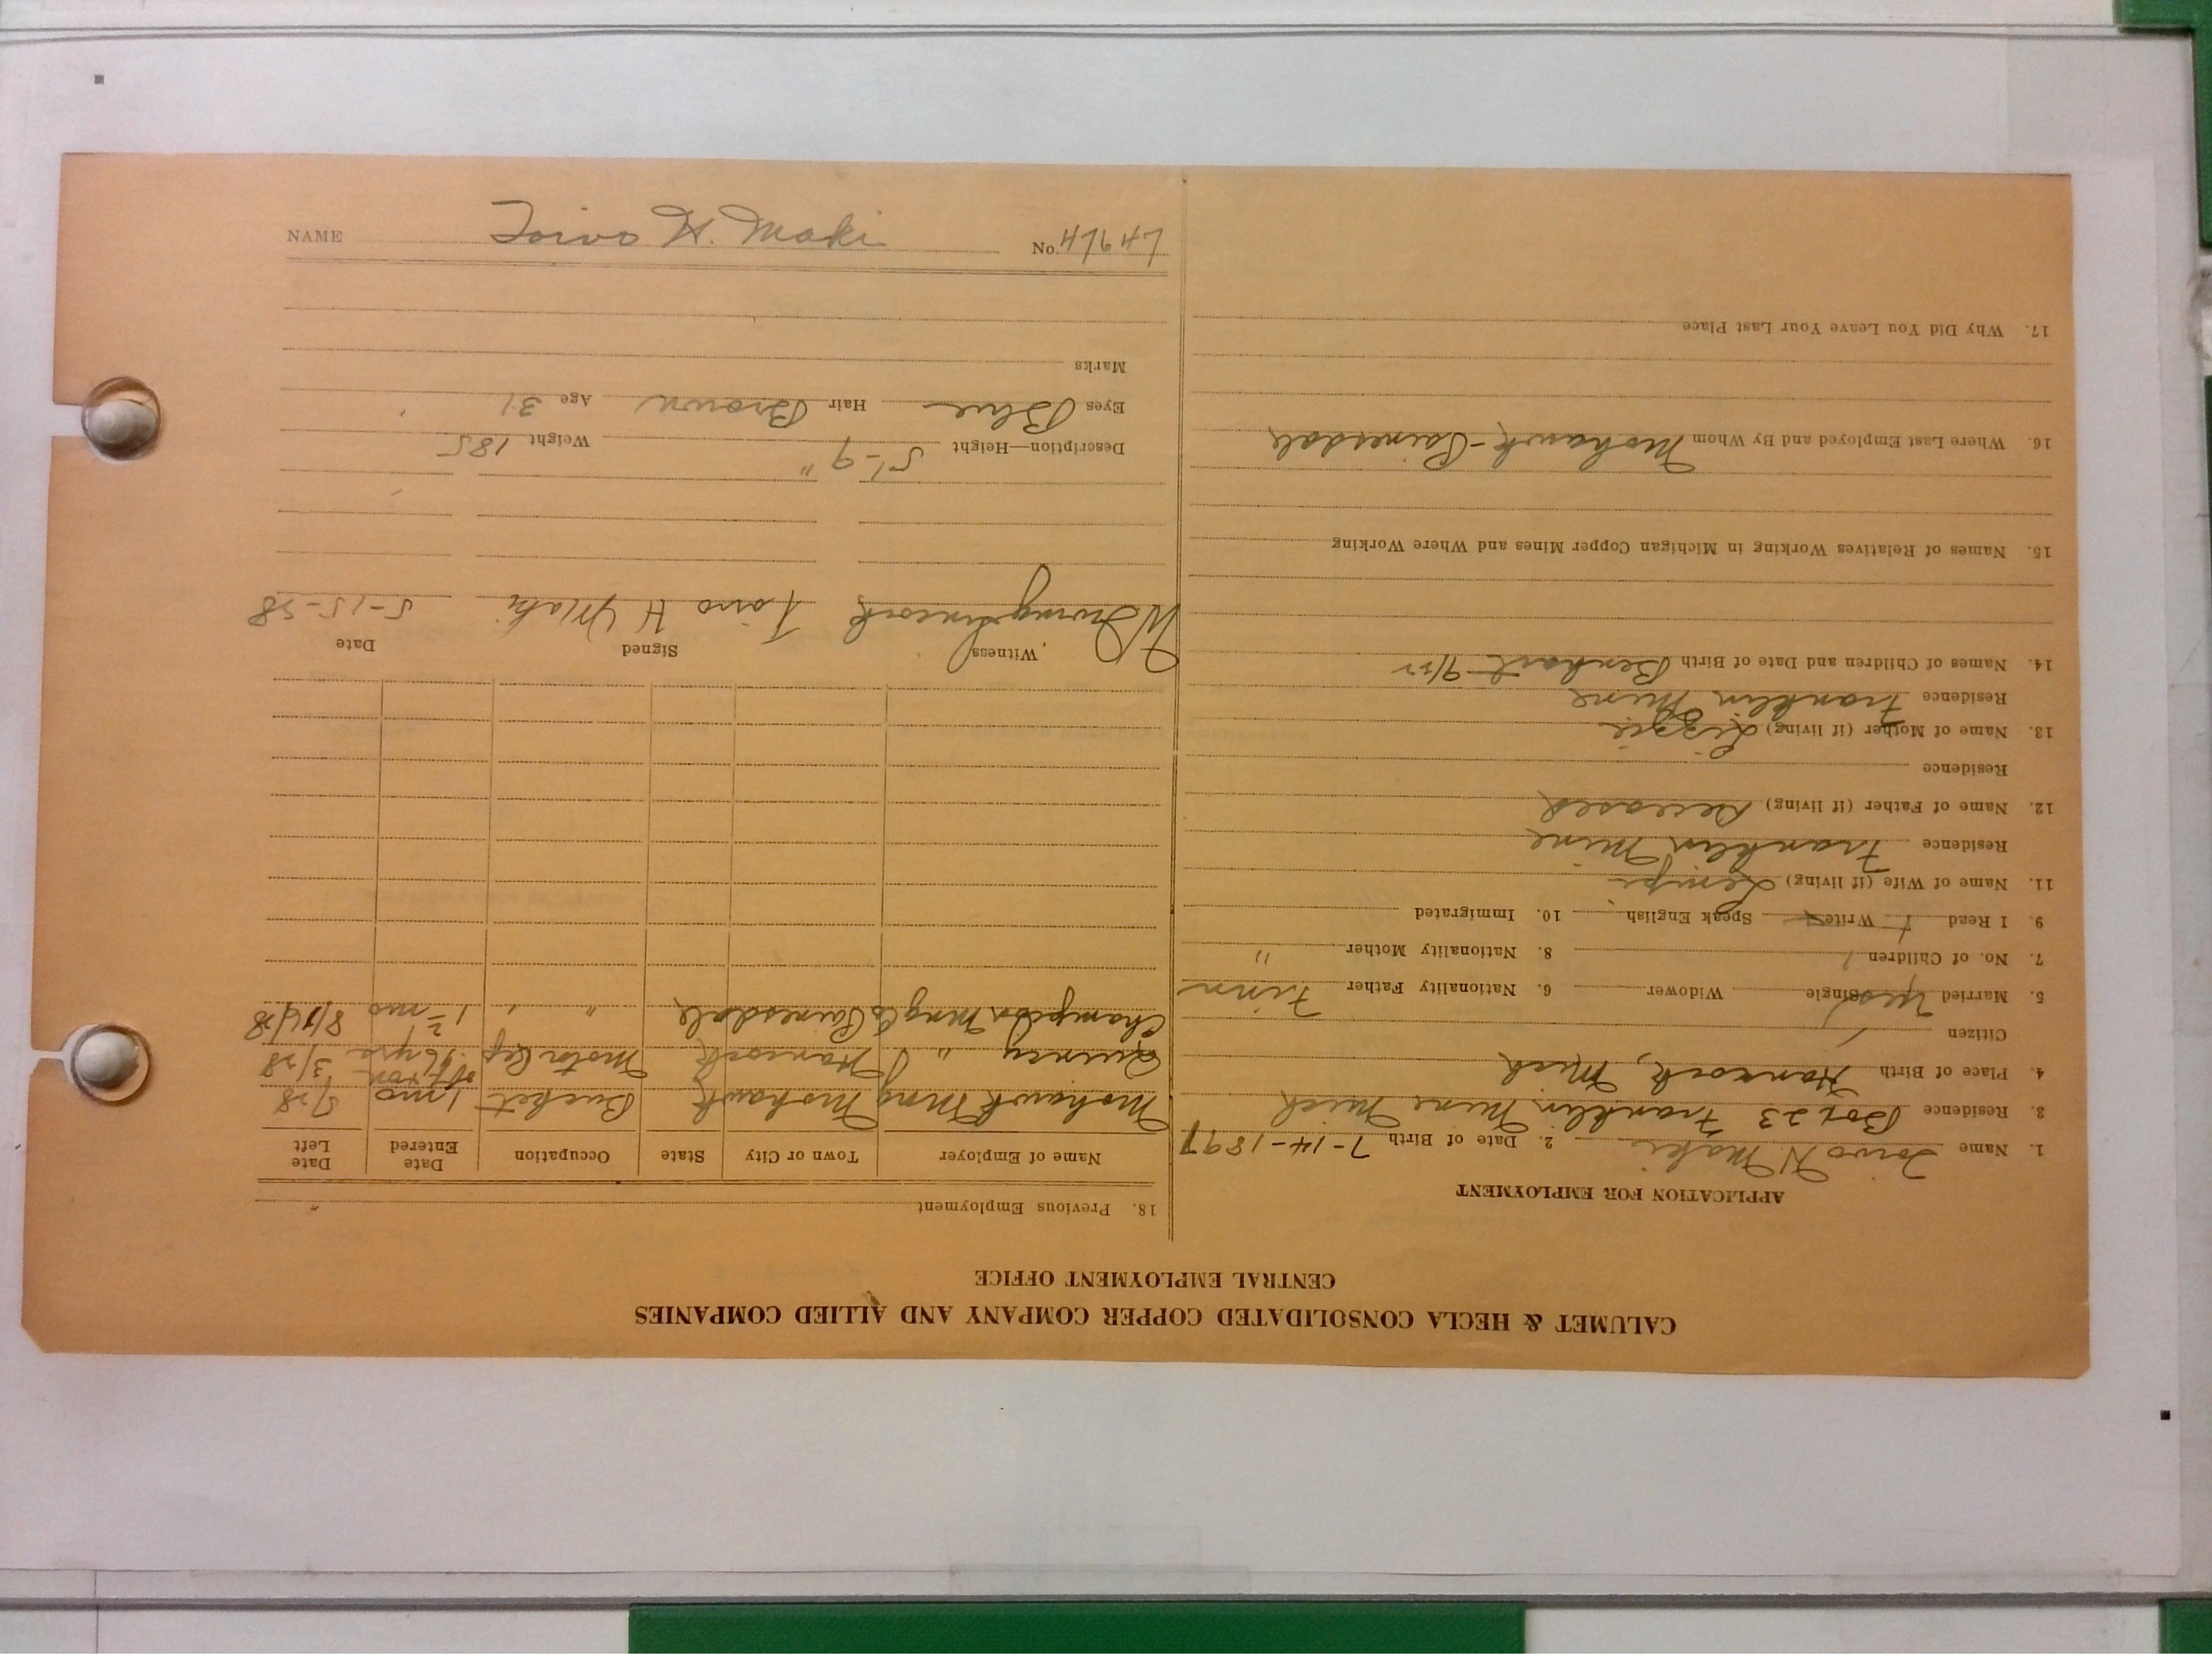 CALUMET & HECLA CONSOLIDATED COPPER COMPANY AND ALLIED COMPANIES
CENTRAL EMPLOYMENT OFFICE
APPLICATION FOR EMPLOYMENT
1. Name Toivo H Maki 2. Date of Birth 7-14-1897
3. Residence Box 23 Franklin Mine Mich
4. Place of Birth Hancock, Mich
Citizen
5. Married Yes Single Widower 6. Nationality Father Finn
7. No. of Children 1 8. Nationality Mother "
9. I Read Write Speak English 10. Immigrated
11. Name of Wife (if living) Lempi
Residence Franklin Mine
12. Name of Father (if living) Deceased
Residence
13. Name of Mother (if living) Lizzie
Residence Franklin Mine
14. Names of Children and Date of Birth
15. Names of Relatives Working in Michigan Copper Mines and Where Working
16. Where Last Employed and By Whom Mohawk-Painesdale
17. Why Did You Leave Your Last Place
18. Previous Employment
Name of Employer Town or City State Occupation Date Entered Date Left
Mohawk Mng Mohawk Bucket 1 mo 5/28
Quincy " Hancock Motor 3/28
Champion Mng Co Painesdale " 1 1/2 mos
Witness Signed Date
Toivo H Maki
Description—Height 5'-9" Weight 185
Eyes Blue Hair Brown Age 31
Marks
NAME Toivo H. Maki No. 47647